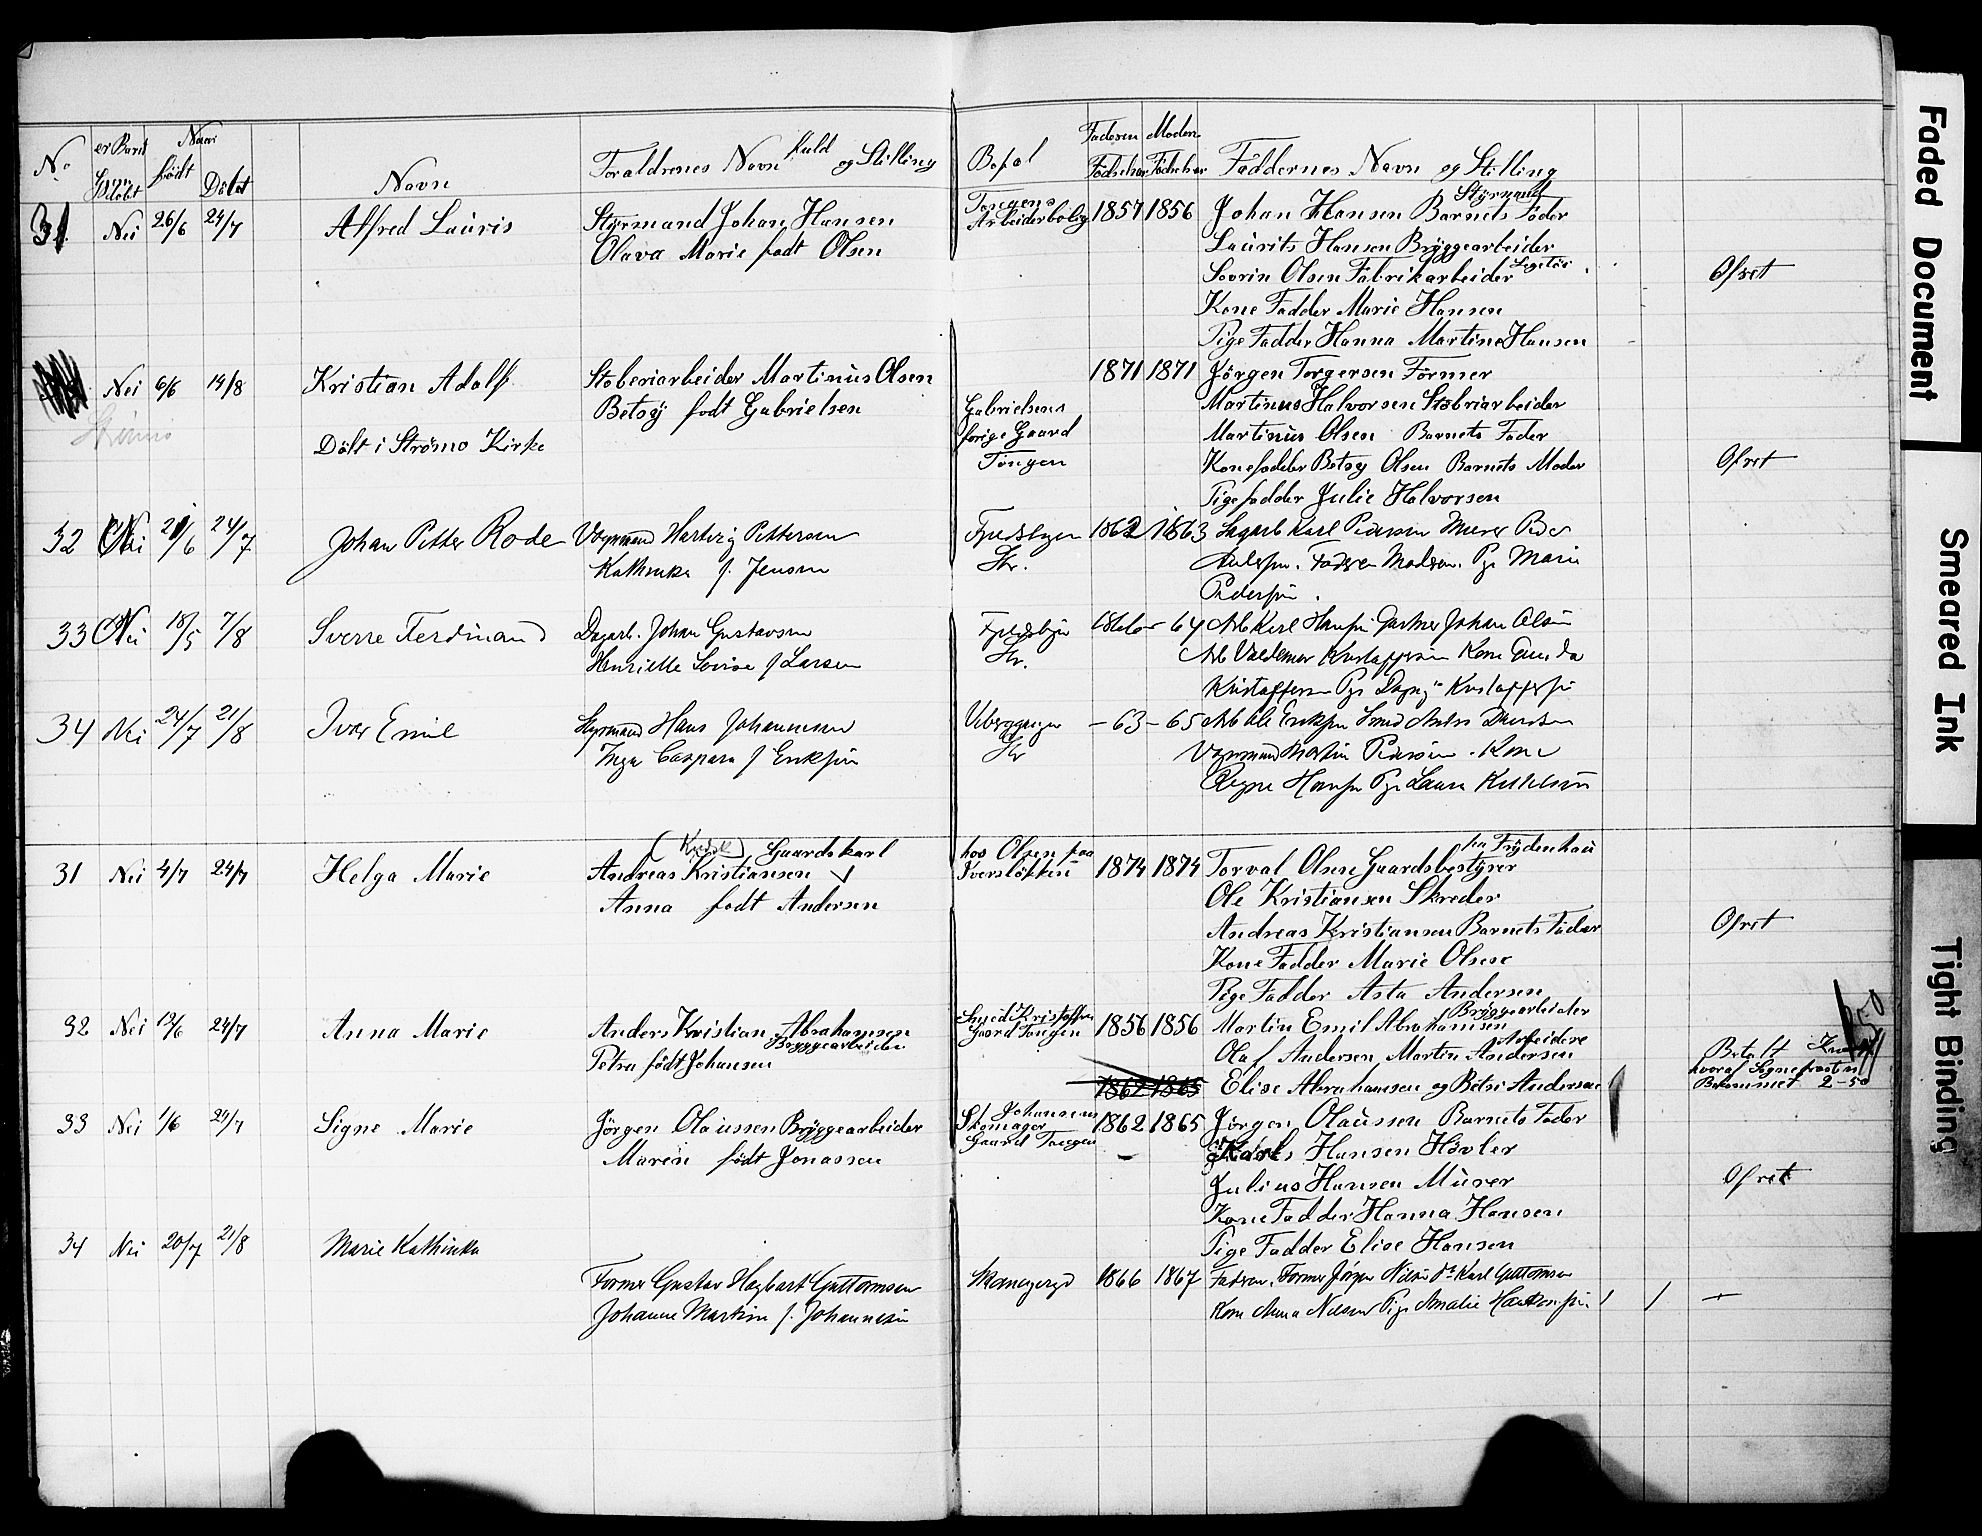 No er Barnet Naar født Døbt Navn Foraldrenes Navn fuld og Stilling Bopæl Faderen Fødselsaar Moderen Fødselsaar Faddernes Navn og Stilling
31. Nei 26/6 24/7 Alfred Lauris Styrmand Johan Hansen Tangens Arbeiderbolig 1857 1856 Johan Hansen Barnets Fader Styrmand
Olava Marie født Olsen Laurits Hansen Bryggearbeider
Sovrin Olsen Fabrikarbeider Ofret
Kone Fadder Marie Hansen
Pige Fadder Hanna Martine Hansen
Nei 6/6 14/8 Kristian Adolf Støberiarbeider Martinus Olsen 1871 1871 Jørgen Torgersen Former
Betsy født Gabrielsen Gabrielsens Martinus Halvorsen Støbriarbeider
Strømsø
Døbt i Strømso Kirke forige Gaard Martinus Olsen Barnets Fader
Tangen Konefadder Betsy Olsen Barnets Moder Ofret
Pigefadder Julie Halvorsen
32 Nei 21/6 24/7 Johan Petter Rode Vognmand Hartvig Pettersen 1862 1863 Karl Pedersen Murer
Kathinka f. Jensen Str. Faderen Moderen. Pige Marie
Pedersen.
33 Nei 18/5 7/8 Sverre Ferdinand Dagarb. Johan Gustavsen - 64 Arb Karl Hansen Gartner Johan Olsen
Henriette Lovise f Larsen Str. Arb Valdemar Kristoffersen Kone
Kristoffersen Pige Dagny Kristoffersen
34 Nei 24/7 21/8 Iver Emil Styrmand Hans Johannesen - 63 - 65 Arb Ole Eriksen Smed
Inga Caspara f Eriksen Str Vognmand Martin Pedersen. Kone
Hansen Pige Laura
31 Nei 4/7 24/7 Helga Marie Andreas Kristiansen (Kudsk) Gaardskarl hos Olsen paa Iversløkken 1874 1874 Torval Olsen Gaardsbestyrer paa Frydenhau
Anna født Andersen Ole Kristiansen Skreder
Andreas Kristiansen Barnets Fader Ofret
Kone Fadder Marie Olsen
Pige Fadder Asta Andersen
32 Nei 12/6 24/7 Anna Marie Anders Kristian Abrahamsen Bryggearbeider Smed Kristoffers Gaard Tangen 1856 1856 Martin Emil Abrahamsen Bryggearbeider
Petra født Johansen Olaf Andersen Martin Andersen Arbeidere Betalt
1862 1865 Elise Abrahamsen og Betsi Andersen hvoraf Sognepresten Bekommet 2-50
33 Nei 1/6 24/7 Signe Marie Jørgen Olaussen Bryggearbeider Skomager Johansens Gaard Tangen 1862 1865 Jørgen Olaussen Barnets Fader
Maren født Jonassen Karl Hansen Høvler
Julius Hansen Murer Ofret
Kone Fadder Hanna Hansen
34 Nei 20/7 21/8 Marie Kathinka Pige Fadder Elise Hansen
Former Gustav Hagbart Guttormsen 1866 1867 Faderen. Former Jørgen Nilsen do Karl Guttormsen
Johanne Martine f. Johannesen Kone Anna Nilsen Pige Amalie / / -
Faded Document
Smeared Ink
Tight Binding